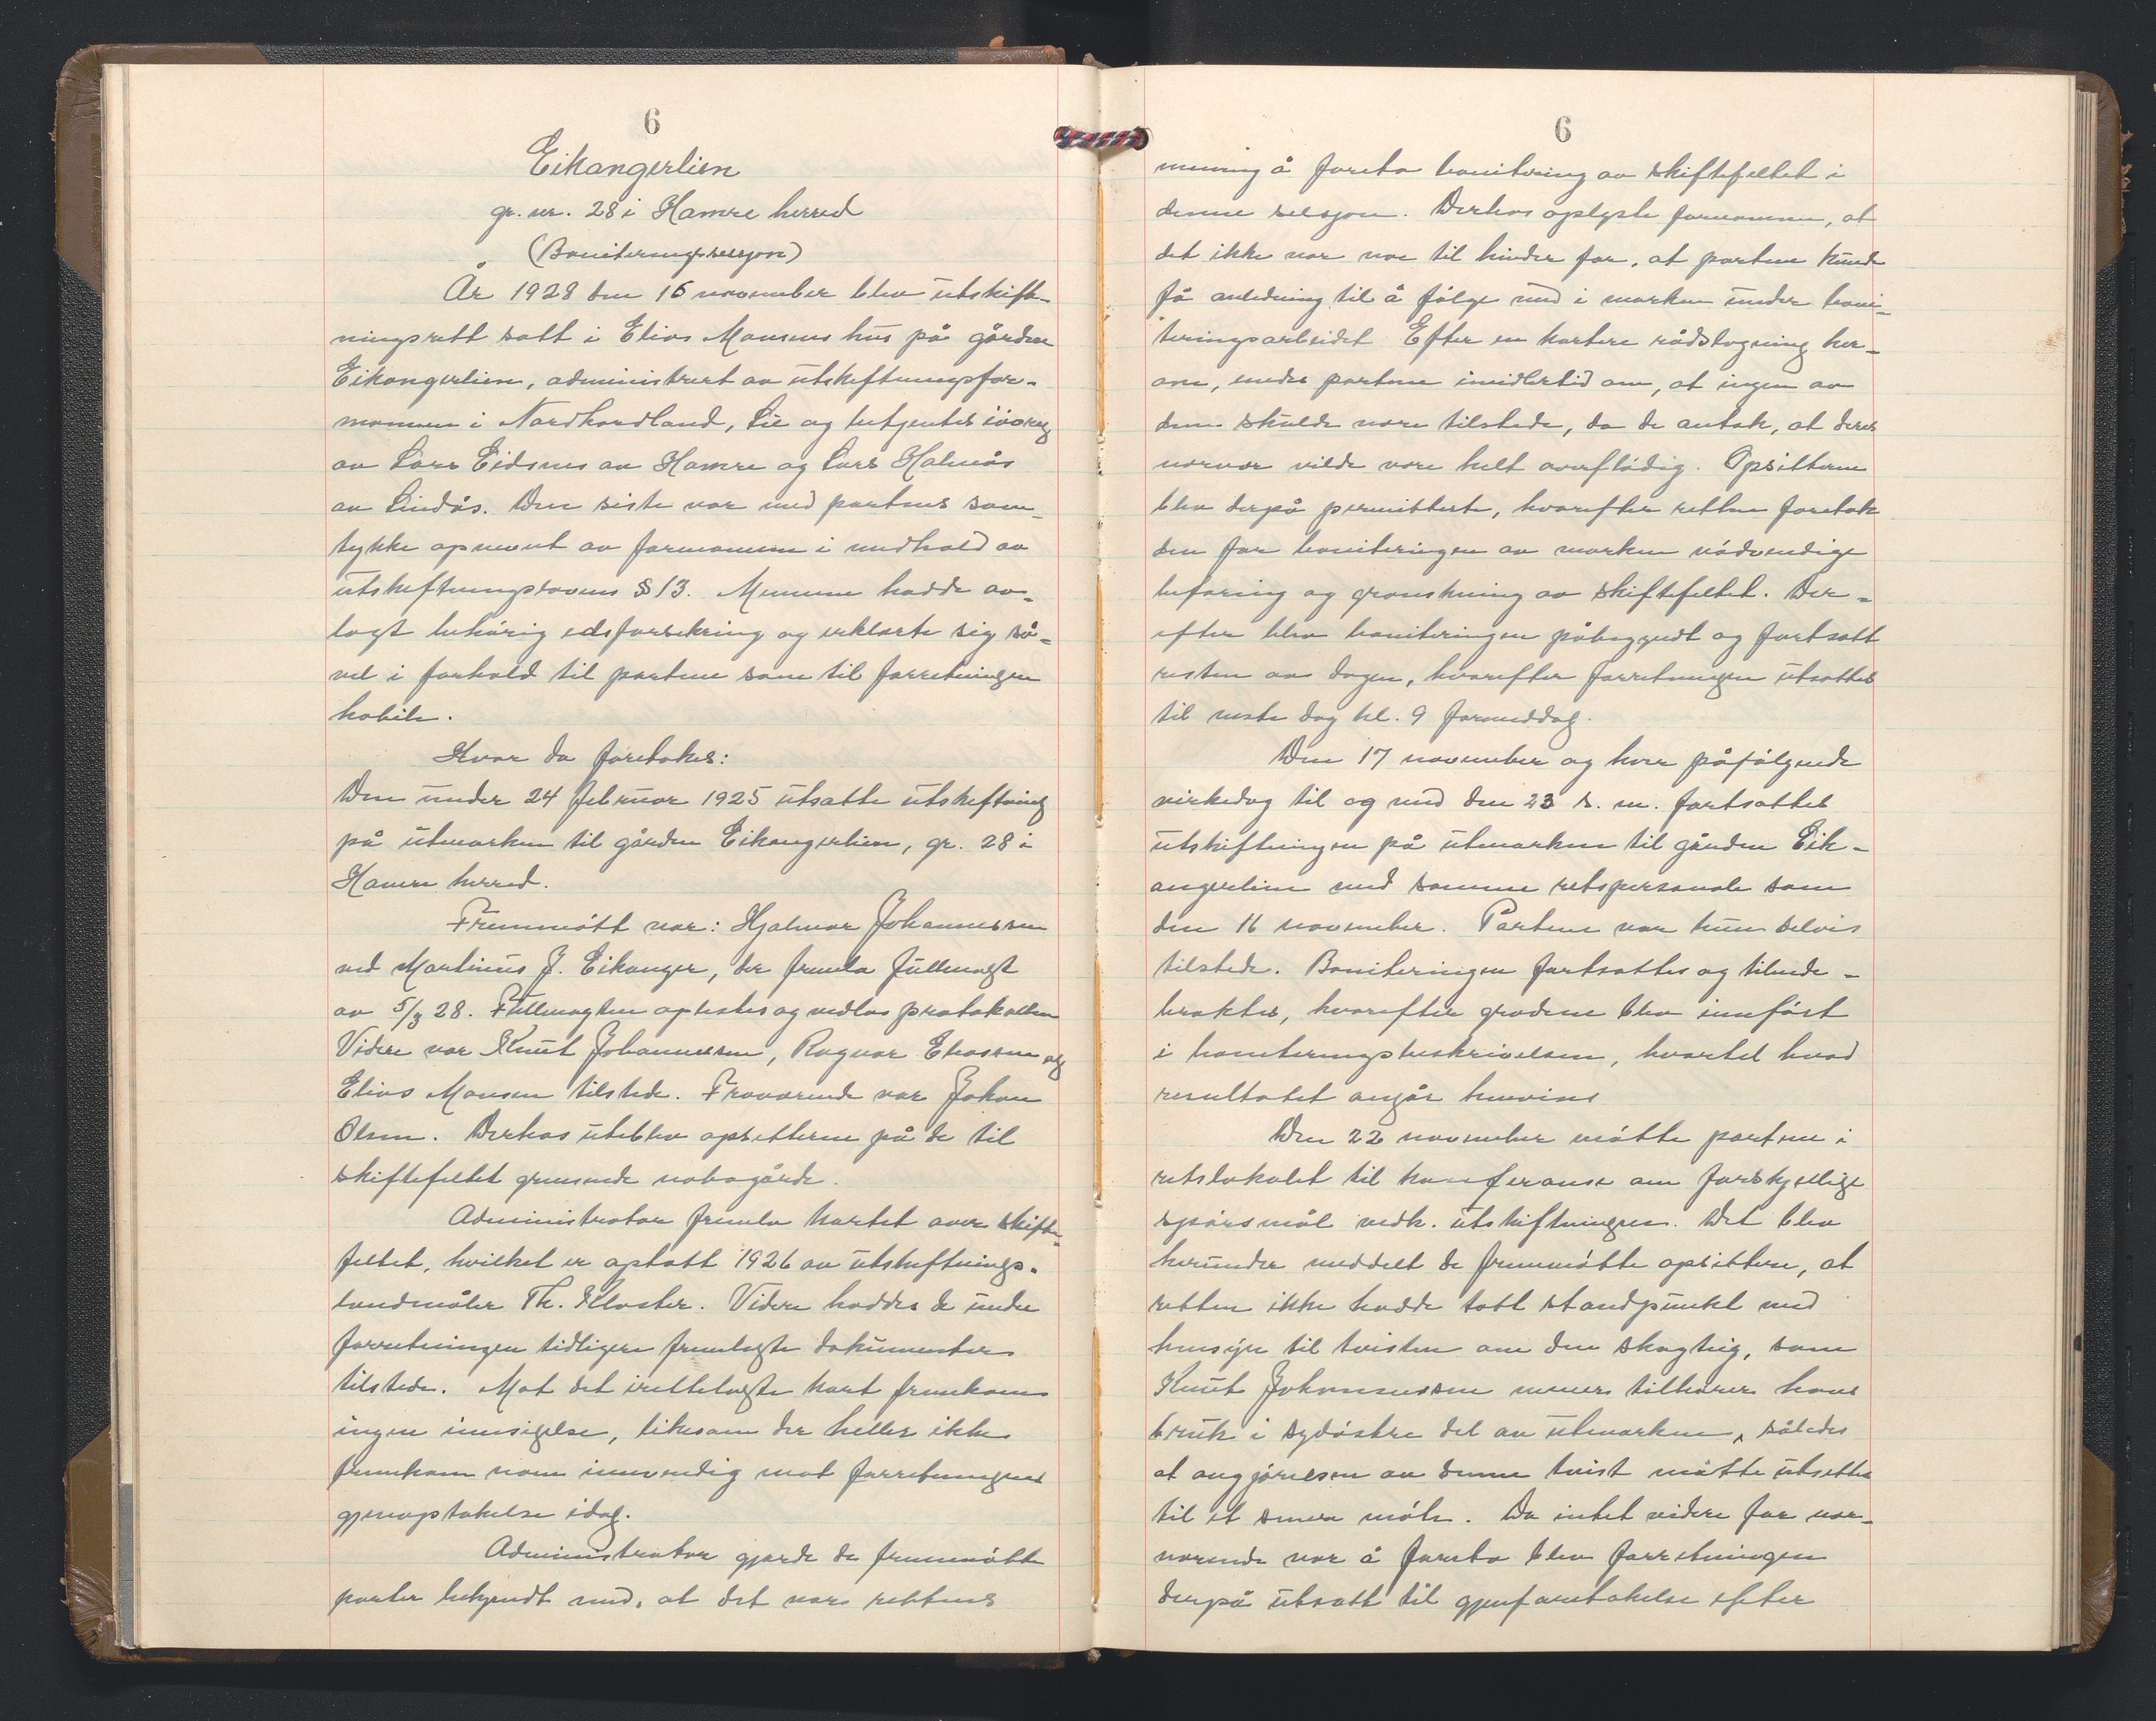 6
Eikangerlien
gr. nr. 28 i Hamre herred
(Boniteringssesjon)
År 1928 den 16 november blev utskift-
ningsrett satt i Elias Monsens hus på gården
Eikangerlien, administrert av utskiftningsfor-
mannen i Nordhordland, Lie og betjentes iøvrig
av Lars Eidsnes av Hamre og Lars Halnås
av Lindås. Den siste var med partenes sam-
tykke opnevnt av formannen i medhold av
utskiftningslovens § 13. Mennene hadde av-
lagt behørig edsforsikring og erklærte sig så-
vel i forhold til partene som til forretningen
habile.
Hvor da foretokes:
Den under 24 februar 1925 utsatte utskiftning
på utmarken til gården Eikangerlien, gr. 28 i
Hamre herred.
Fremmøtt var: Hjalmar Johannessen
ved Martinus J. Eikanger, der fremla fullmagt
av 5/3 28. Fullmagten oplestes og vedlas protokollen
Videre var Knut Johannessen, Ragnar Eliassen og
Elias Monsen tilstede. Fraværende var Johan
Olsen. Derhos uteblev opsitterne på de til
skiftefeltet grensende nabogårde.
Administrator fremla kartet over skifte-
feltet, hvilket er optatt 1926 av utskiftnings-
landmåler Th. Kloster. Videre haddes de under
forretningen tidligere fremlagte dokumenter
tilstede. Mot det irettelagte kart fremkom
ingen innsigelse, likesom der heller ikke
fremkom noen innvendig mot forretningens
gjenoptakelse idag.
Administrator gjorde de fremmøtte
parter bekjendt med, at det var rettens
6
mening å foreta bonitering av skiftefeltet i
denne sesjon. Derhos oplyste formannen, at
det ikke var noe til hinder for, at partene kunde
få anledning til å følge med i marken under boni-
teringsarbeidet. Efter en kortere rådslagning her-
om, enedes partene imidlertid om, at ingen av
dem skulde være tilstede, da de antok, at deres
nærvær vilde være helt overflødig. Opsitterne
blev derpå permitterte, hvorefter retten foretok
den for boniteringen av marken nødvendige
befaring og granskning av skiftefeltet. Der-
efter blev boniteringen påbegyndt og fortsatt
resten av dagen, hvorefter forretningen utsattes
til neste dag kl. 9 formiddag.
Den 17 november og hver påfølgende
virkedag til og med den 23 s. m. fortsattes
utskiftningen på utmarken til gården Eik-
angerlien med samme retspersonale som
den 16 november. Partene var kun delvis
tilstede. Boniteringen fortsattes og tilende-
braktes, hvorefter gradene blev innført
i boniteringsbeskrivelsen, hvortil hvad
resultatet angår henvises
Den 22 november møtte partene i
retslokalet til konferanse om forskjellige
spørsmål vedk. utskiftningen. Det blev
herunder meddelt de fremmøtte opsittere, at
retten ikke hadde tatt standpunkt med
hensyn til tvisten om den skogteig, som
Knut Johannessen mener tilhører hans
bruk i sydøstre del av utmarken, således
at avgjørelsen av denne tvist måtte utsettes
til et senere møte. Da intet videre for nær-
værende var å foreta blev forretningen
derpå utsatt til gjenforetakelse efter